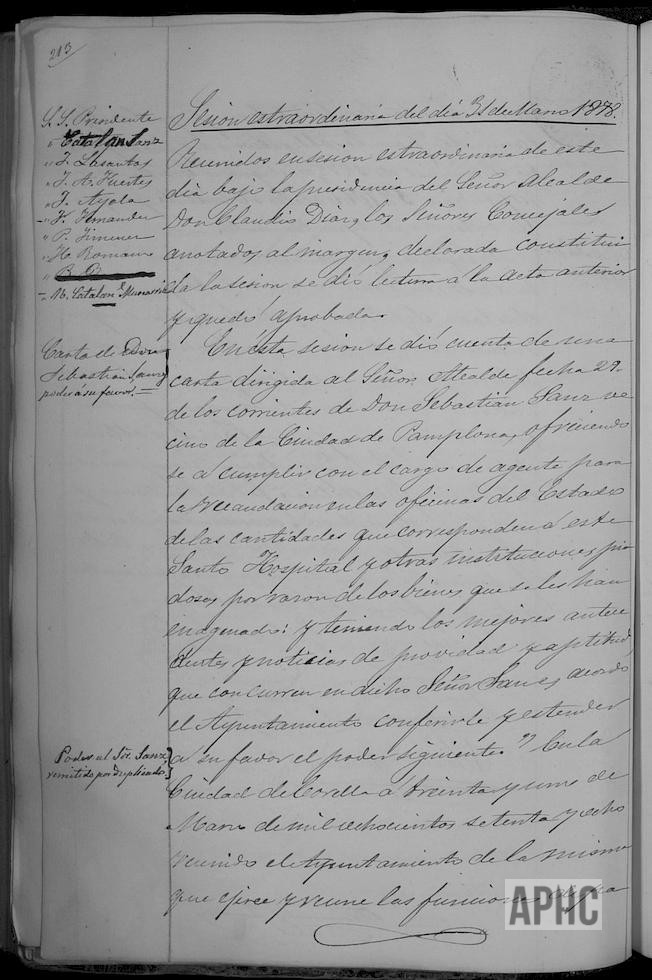 213
S. S. Presidente
" Catalan Sanz
" J. Lasantas
" J. A. Fuertes
" J. Ayala
" F. Hernandez
" P. Jimenez
" H. Romano
" B. R
" M. Catalan Munarriz
Carta de Don
Sebastian Sanz
poder á su favor.
Poder al Sor. Sanz,
remitido por duplicado.
Sesion estraordinaria del dia 31 de Marzo 1878.
Reunidos en sesion estraordinaria de este
dia bajo la presidencia del Señor Alcalde
Don Claudio Diaz, los Señores Concejales
anotados al margen, declarada constitui
da la sesion se dió lectura á la acta anterior
y quedó aprobada.
En esta sesion se dió cuenta de una
carta dirigida al Señor Alcalde fecha 29
de los corrientes de Don Sebastián Sanz ve
cino de la Ciudad de Pamplona, ofreciendo
se á cumplir con el cargo de agente para
la recaudacion en las oficinas del Estado
de las cantidades que corresponden á este
Santo Hospital y otras instituciones pia
dosas por razon de los bienes que se les han
enagenado: y teniendo los mejores antece
dentes y noticias de providad y aptitud
que concurren en dicho Señor Sanz, acordó
el Ayuntamiento conferirle y estender
á su favor el poder siguiente. " En la
Ciudad de Corella á treinta y uno de
Marzo de mil ochocientos setenta y ocho
reunido el Ayuntamiento de la misma
que ejerce y reune las funciones
APHC